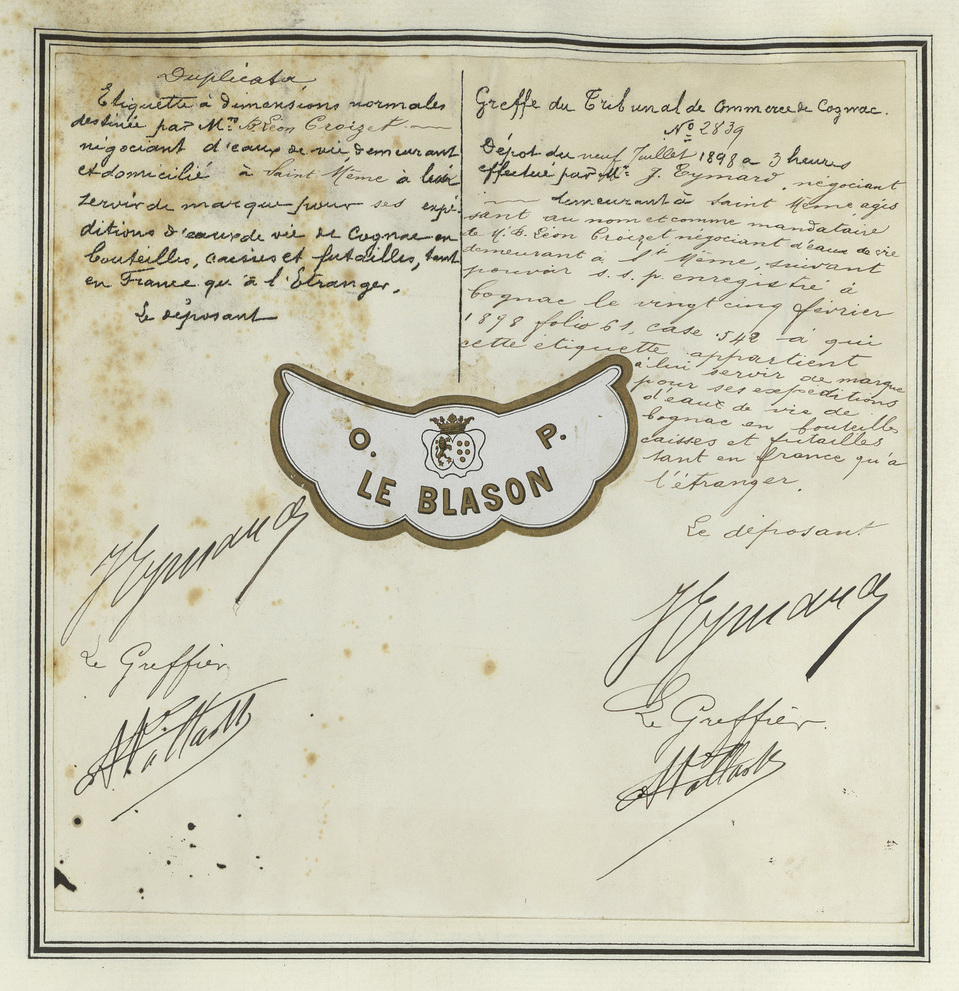 Duplicata
Etiquette à dimensions normales
destinée par Mr. B. Léon Croizet
négociant d'eaux de vie, demeurant
et domicilié à Saint Même à lui
servir de marque pour ses expé-
ditions d'eaux de vie de Cognac en
bouteilles, caisses et futailles, tant
en France qu'à l'Etranger.
Le déposant
JEymard
Le Greffier
Greffe du Tribunal de Commerce de Cognac.
No 2839
Dépôt du neuf Juillet 1898 à 3 heures
effectué par Mr. J. Eymard, négociant
demeurant à Saint Même agis
sant au nom et comme mandataire
de M. B. Léon Croizet négociant d'eaux de vie
demeurant à St Même, suivant
pouvoir s.s.p. enregistré à
Cognac le vingt cinq février
1898 folio 61, case 542 à qui
cette étiquette appartient
à lui servir de marque
pour ses expéditions
d'eaux de vie de
Cognac en bouteilles
caisses et futailles
tant en france qu'à
l'étranger.
Le déposant
JEymard
Le Greffier.
O. P.
LE BLASON